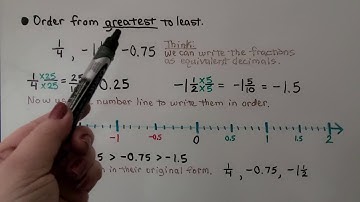 Order from greatest to least.
1/4 , -1 -0.75
Think:
we can write the fractions
as equivalent decimals.
1/4 ×25/×25 = 25 0.25
-1 1/2 ×5/×5 = -1 5/10 = -1.5
Now use number line to write them in order.
-1 0 1 2
5 > -0.75 > -1.5
in their original form. 1/4, -0.75, -1 1/2